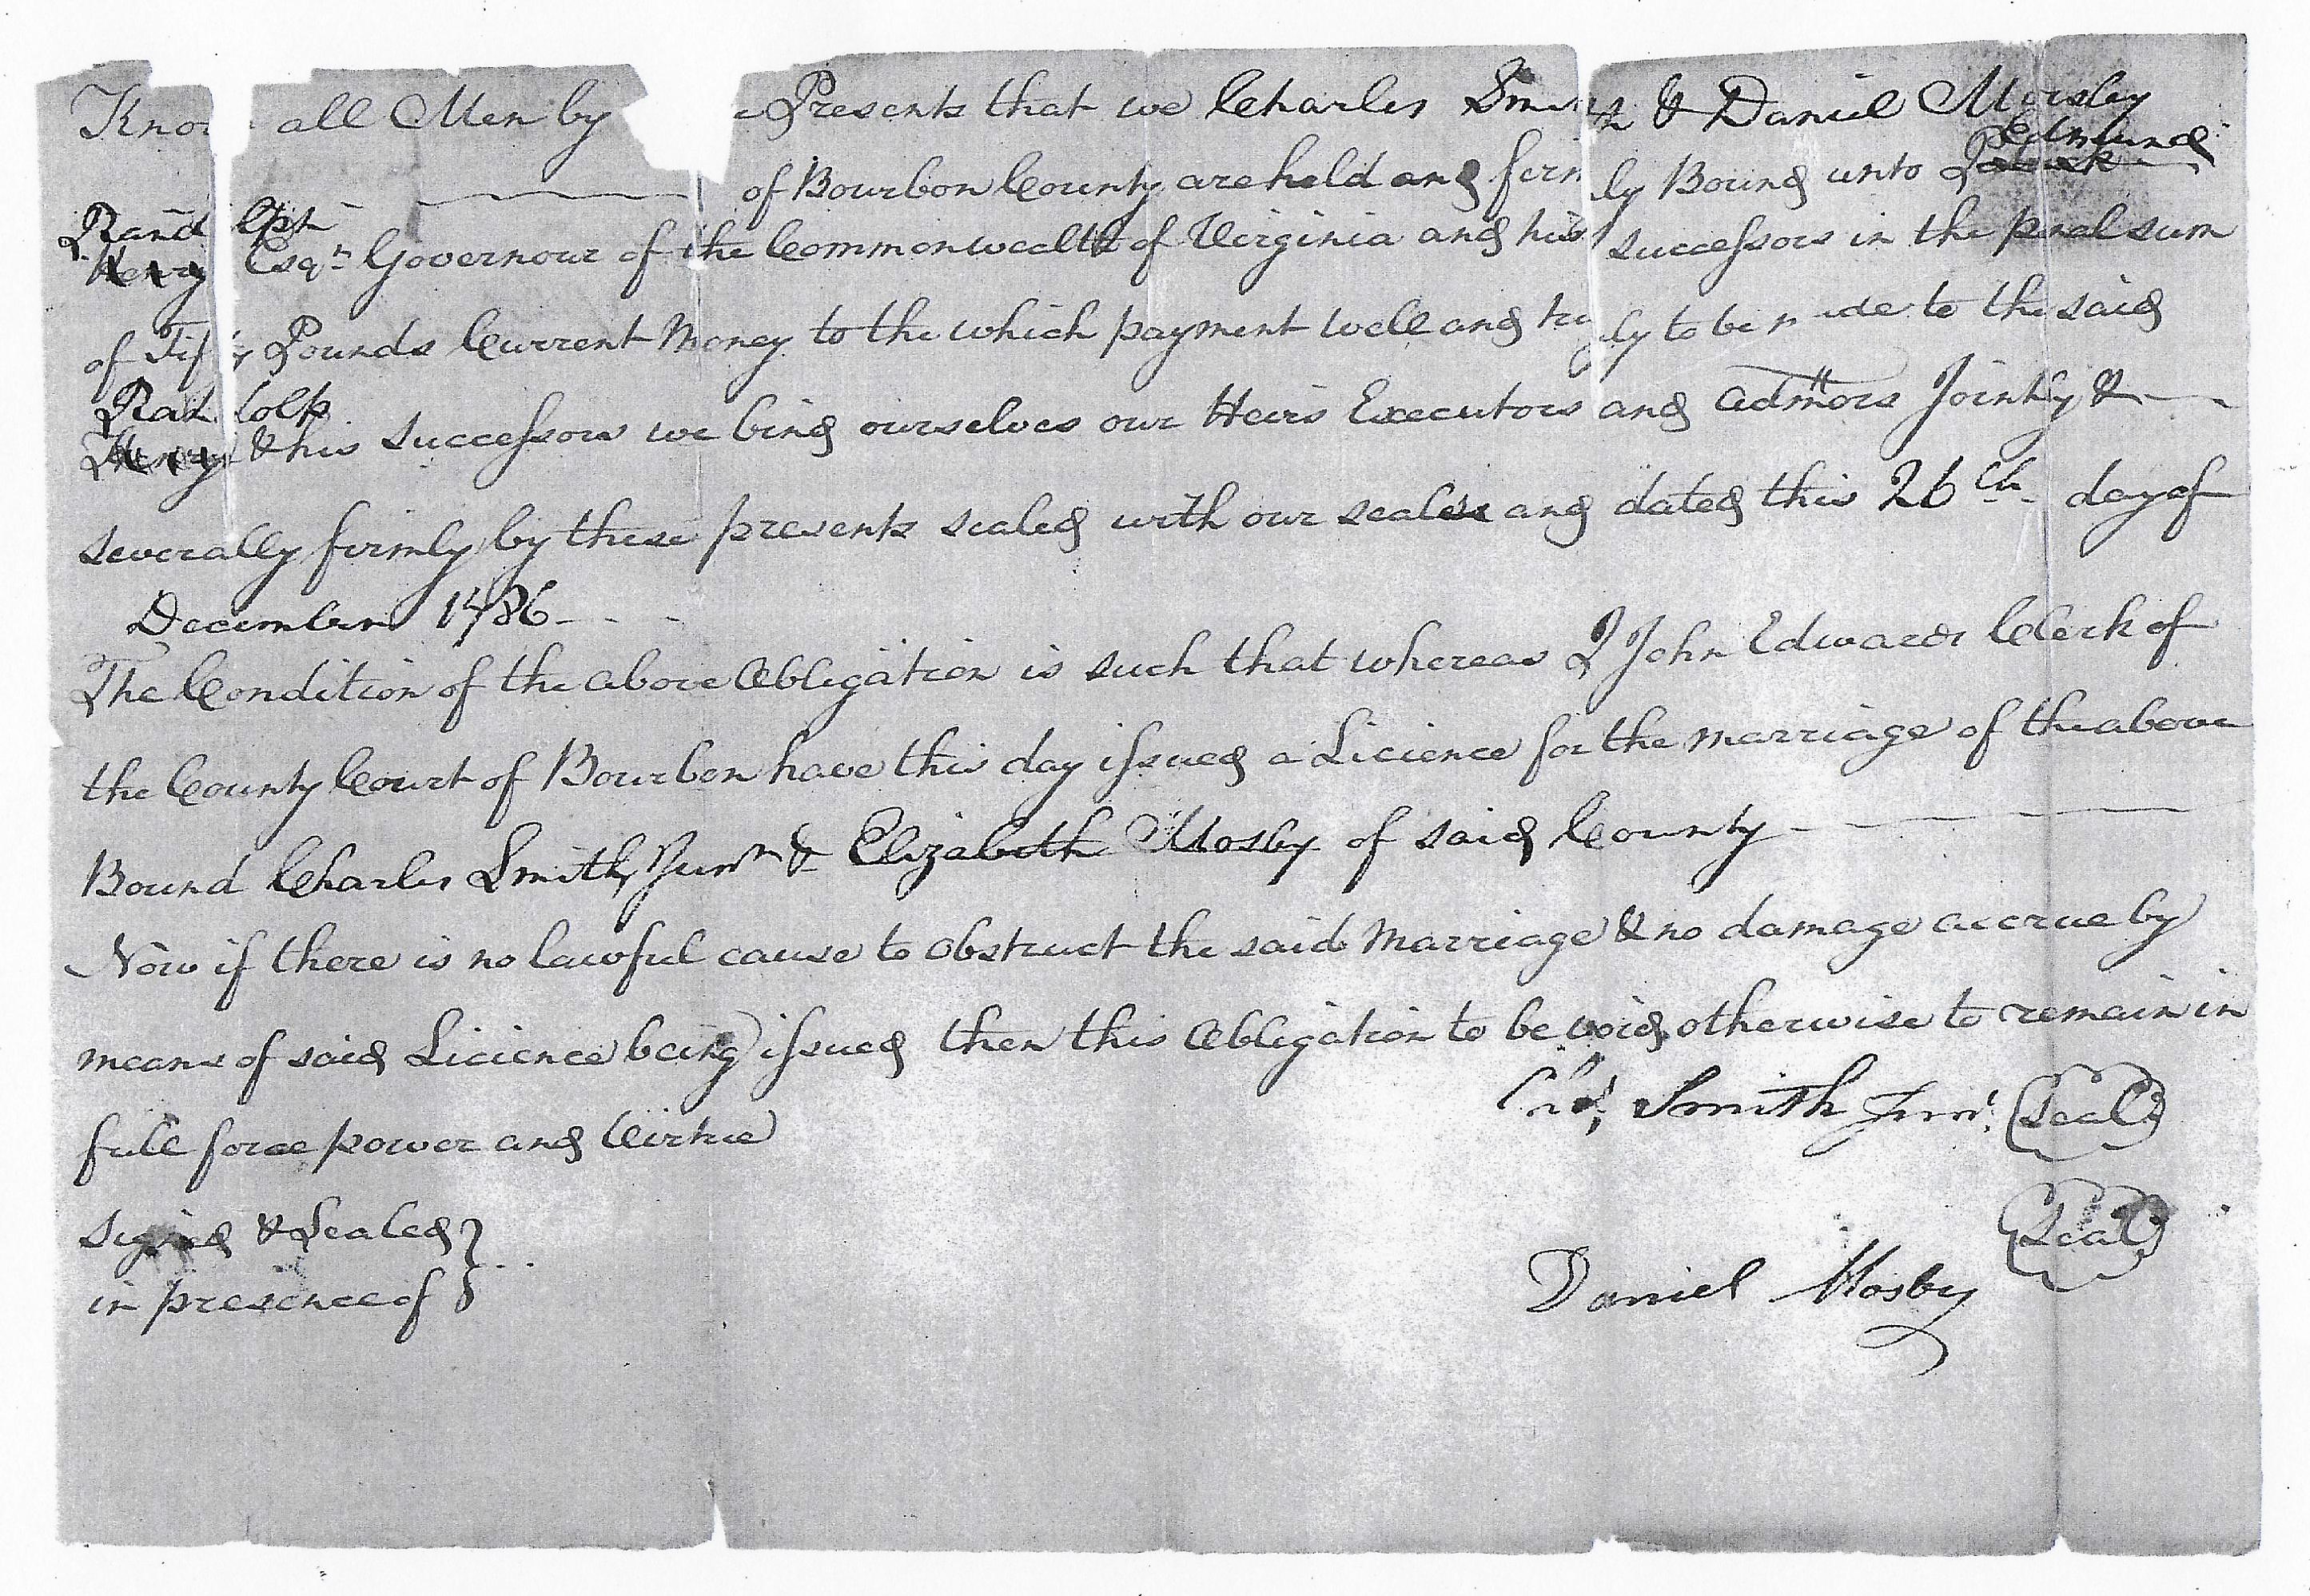 Know all Men by e Presents that we Charles Smith & Daniel Mosby
of Bourbon County are held and firmly Bound unto Patrick Edmund
Randolph
Henry Esqr. Governour of the Commonwealth of Virginia and his successors in the penal sum
of Fifty Pounds Current Money to the which payment well and truly to be made to the said
Randolp
Henry & his successors we bind ourselves our Heirs Executors and admors Jointly &
severally firmly by these presents sealed with our seales and dated this 26th day of
December 1786
The Condition of the above Obligation is such that whereas I John Edwards Clerk of
the County Court of Bourbon have this day issued a Licience for the marriage of the above
Bound Charles Smith, Junr & Elizabeth Mosby of said County
Now if there is no lawful cause to obstruct the said Marriage & no damage accrue by
means of said Licience being issued then this Obligation to be void, otherwise to remain in
full force power and Virtue
Chas. Smith Junr. Seal
Signed & Sealed
in presence of
Seal
Daniel Mosby